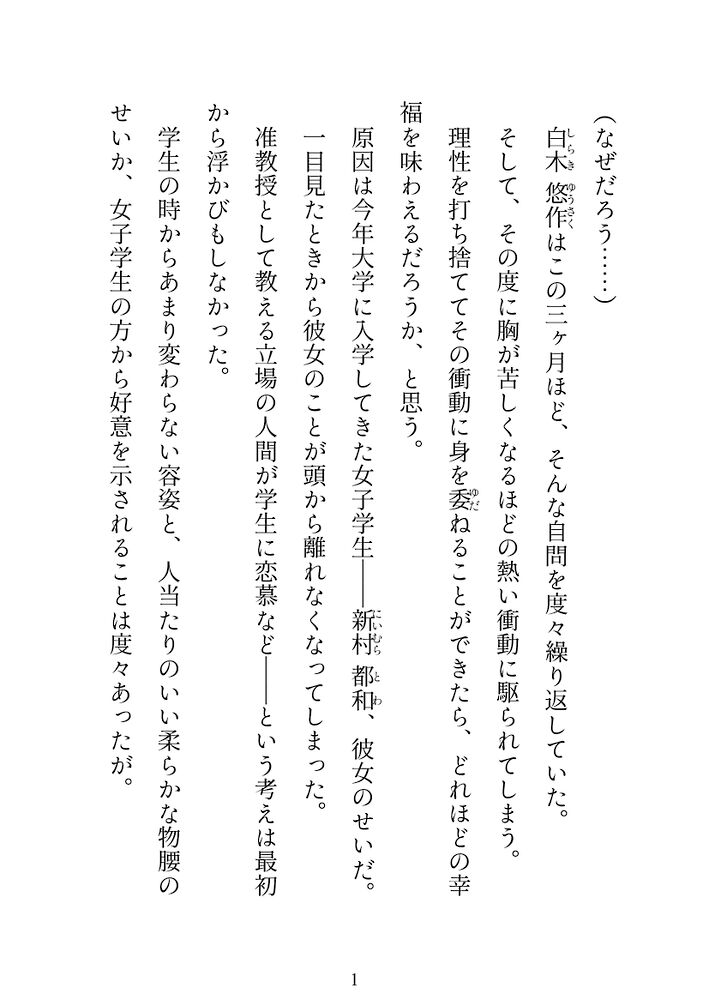 （なぜだろう……）
白木 悠作はこの三ヶ月ほど、そんな自問を度々繰り返していた。
そして、その度に胸が苦しくなるほどの熱い衝動に駆られてしまう。
理性を打ち捨ててその衝動に身を委ねることができたら、どれほどの幸
福を味わえるだろうか、と思う。
原因は今年大学に入学してきた女子学生――新村 都和、彼女のせいだ。
一目見たときから彼女のことが頭から離れなくなってしまった。
准教授として教える立場の人間が学生に恋慕など――という考えは最初
から浮かびもしなかった。
学生の時からあまり変わらない容姿と、人当たりのいい柔らかな物腰の
せいか、女子学生の方から好意を示されることは度々あったが。
1